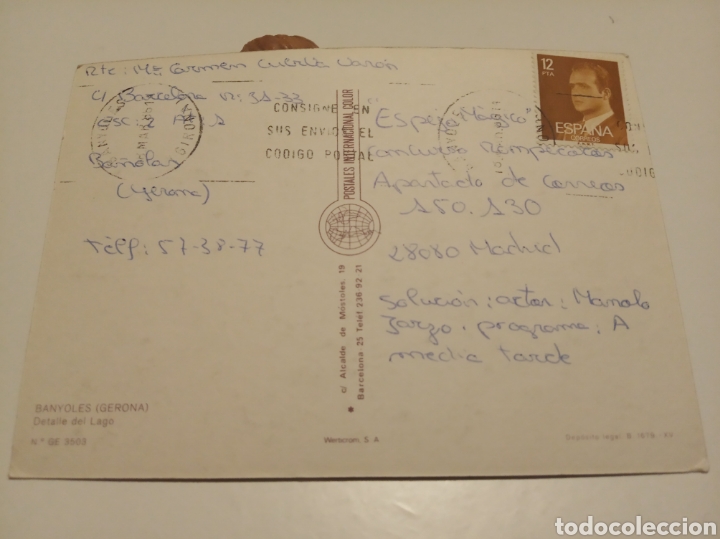 Rte: Mª Carmen Cuerla Varón
C/ Barcelona nº: 31-33
Esc 2
Bañolas
(Gerona)
Télf: 57-38-77
CONSIGNE EN
SUS ENVIOS EL
CODIGO POSTAL
GIRONA
12
PTA
ESPAÑA
CORREOS
Espejo Mágico
Concurso Rompecocos
Apartado de Correos
150.130
28080 Madrid
Solución: actor: Manolo
Zarzo. programa: A
media tarde
POSTALES INTERNACIONAL COLOR
c/ Alcalde de Móstoles, 19
Barcelona 25 Telef 236 92 21
BANYOLES (GERONA)
Detalle del Lago
N.º GE 3503
S. A.
Depósito legal B. 1979
todocoleccion